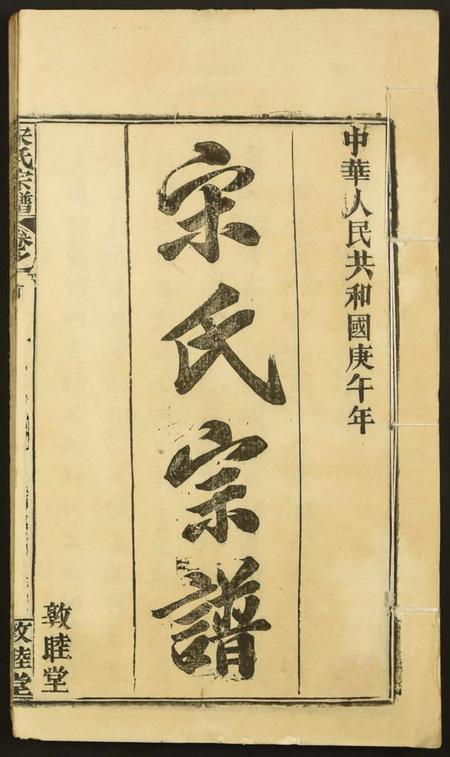 中華人民共和國庚午年
宋氏宗譜
敦睦堂
宋氏宗譜 卷之首
敦睦堂